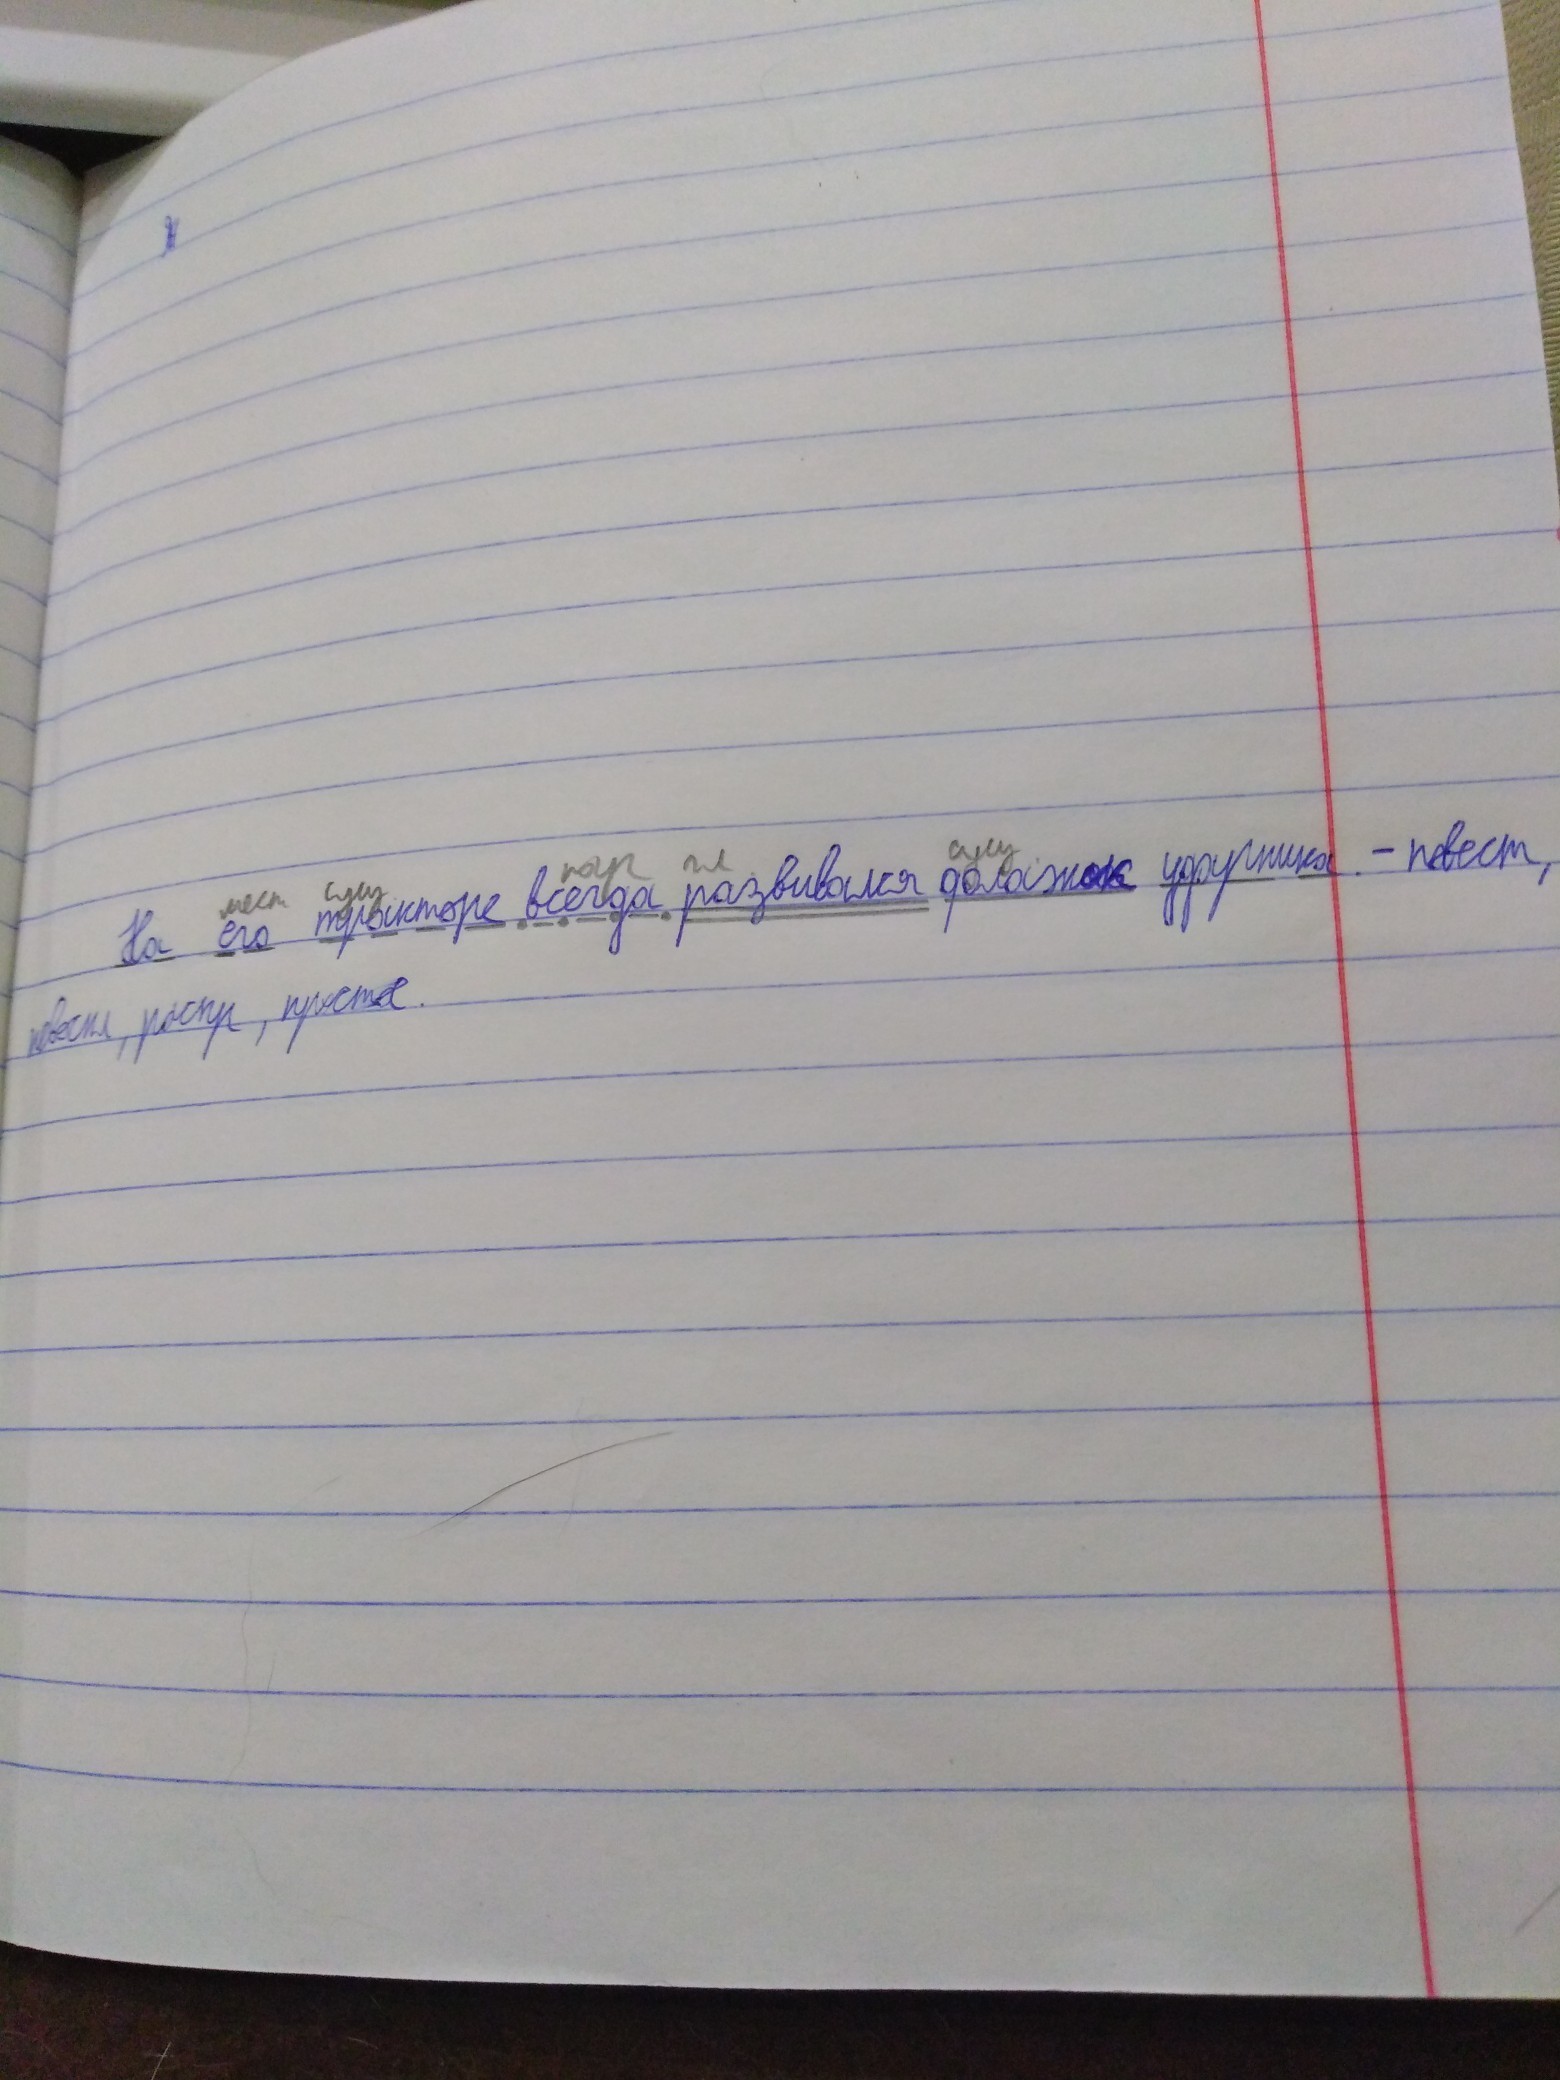 мест сущ нар гл сущ
На его тракторе всегда развивался флажок ударника. - повест,
невоскл, распр, простое.